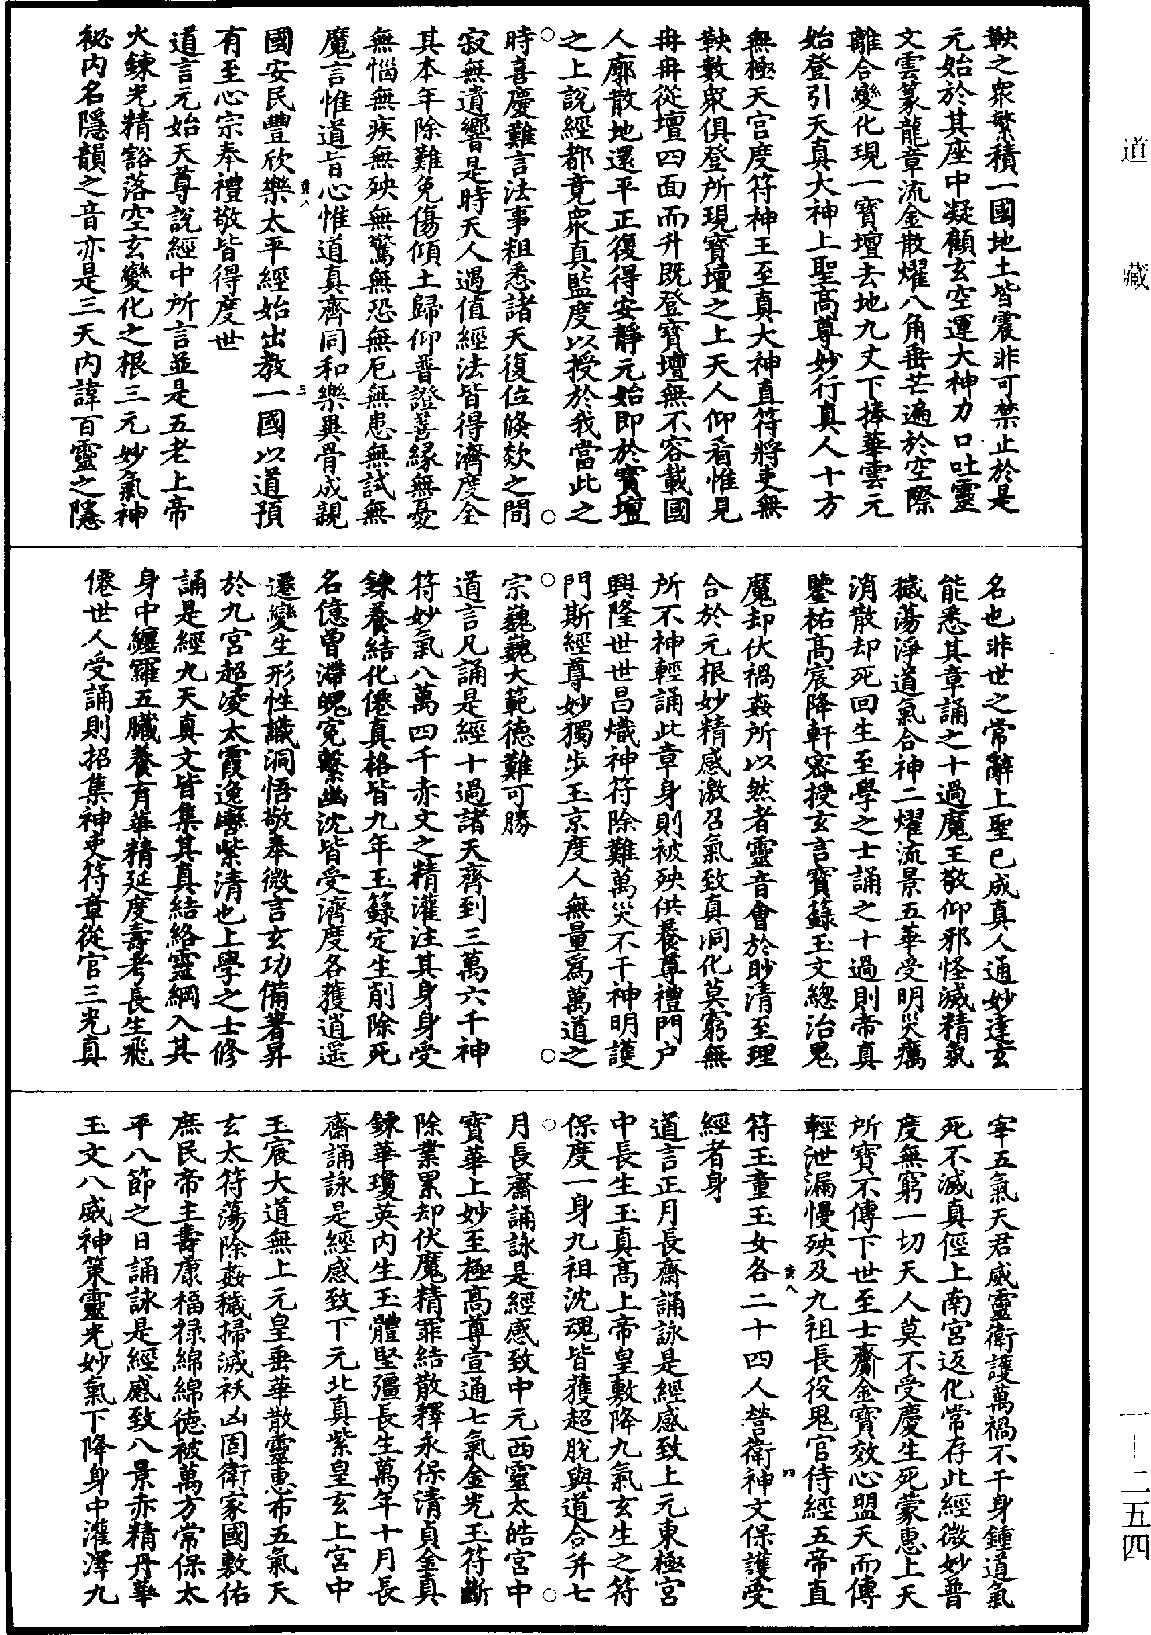 道藏
一—二五四
鞅之衆繁積一國地土皆震非可禁止於是
元始於其座中凝顧玄空運大神力口吐靈
文雲篆龍章流金散耀八角垂芒遍於空際
離合變化現一寶壇去地九丈下捧華雲元
始登引天真大神上聖高尊妙行真人十方
無極天宮度符神王至真大神真符將吏無
鞅數衆俱登所現寶壇之上天人仰看惟見
冉冉從壇四面而升既登寶壇無不容載國
人廓散地還平正復得安靜元始即於寶壇
之上說經都竟衆真監度以授於我當此之
時喜慶難言法事粗悉諸天復位倏欻之間
寂無遺響是時天人遇值經法皆得濟度全
其本年除難免傷傾土歸仰普證善緣無憂
無惱無疾無殃無驚無恐無厄無患無試無
魔言惟道旨心惟道真齊同和樂異骨成親
國安民豐欣樂太平經始出教一國以道預
有至心宗奉禮敬皆得度世
道言元始天尊說經中所言並是五老上帝
火鍊光精豁落空玄變化之根三元妙氣神
祕內名隱韻之音亦是三天內諱百靈之隱
名也非世之常辭上聖已成真人通妙達玄
能悉其章誦之十過魔王敬仰邪怪滅精氛
穢蕩淨道氣合神二耀流景五華受明災癘
消散却死回生至學之士誦之十過則帝真
鑒祐高宸降軒密授玄言寶籙玉文總治鬼
魔却伏禍姦所以然者靈音會於眇清至理
合於元根妙精感激召氣致真洞化莫窮無
所不神輕誦此章身則被殃供養尊禮門户
興隆世世昌熾神符除難萬災不干神明護
門斯經尊妙獨步玉京度人無量爲萬道之
宗巍巍大範德難可勝
道言凡誦是經十過諸天齊到三萬六千神
符妙氣八萬四千赤文之精灌注其身身受
鍊養結化僊真格皆九年玉籙定生削除死
名億曾滯魄冤繫幽沈皆受濟度各獲逍遥
遷變生形性識洞悟敬奉微言玄功備著昇
於九宮超凌太霞逸轡紫清也上學之士修
誦是經九天真文皆集其真結絡靈綱入其
身中纏羅五臟養育華精延度壽考長生飛
僊世人受誦則招集神吏符章從官三光真
宰五氣天君威靈衛護萬禍不干身鍾道氣
死不滅真徑上南宮返化常存此經微妙普
度無窮一切天人莫不受慶生死蒙惠上天
所寶不傳下世至士齎金寶效心盟天而傳
輕泄漏慢殃及九祖長役鬼官侍經五帝直
符玉童玉女各二十四人營衛神文保護受
經者身
道言正月長齋誦詠是經感致上元東極宮
中長生玉真高上帝皇敷降九氣玄生之符
保度一身九祖沈魂皆獲超脱與道合并七
月長齋誦詠是經感致中元西靈太皓宮中
寶華上妙至極高尊宣通七氣金光玉符斷
除業累却伏魔精罪結散釋永保清貞金真
鍊華瓊英內生玉體堅彊長生萬年十月長
齋誦詠是經感致下元北真紫皇玄上宮中
玉宸大道無上元皇垂華散靈惠布五氣天
玄太符蕩除姦穢掃滅袄凶固衛家國敷佑
庶民帝主壽康福禄綿綿德被萬方常保太
平八節之日誦詠是經感致八景赤精丹華
玉文八威神策靈光妙氣下降身中灌澤九